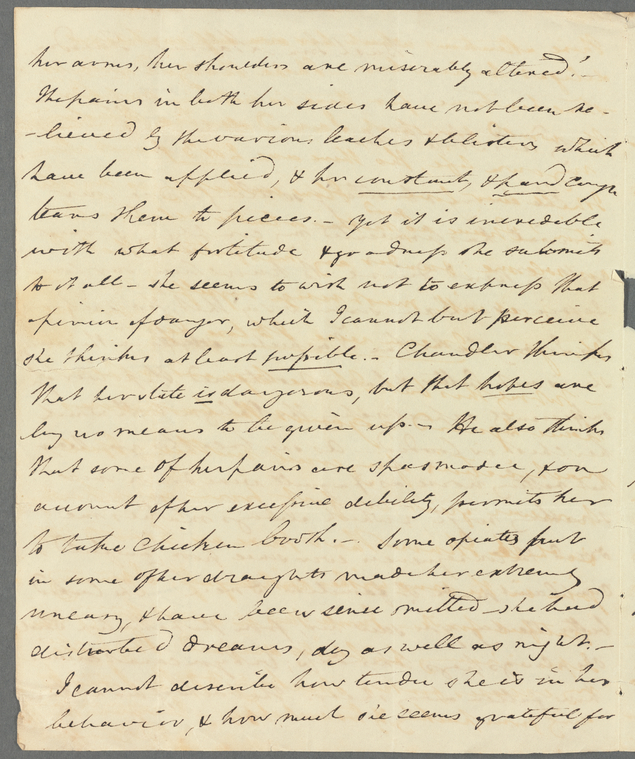 her arms, her shoulders are miserably altered! -
The pains in both her sides have not been re-
-lieved by the various leaches & blisters which
have been applied, & her constant, & hard cough
tears them to pieces. - yet it is incredible
with what fortitude & goodness she submits
to it all - she seems to wish not to express that
opinion of danger, which I cannot but perceive
she thinks at least possible. - Chandler thinks
that her state is dangerous, but that hopes are
by no means to be given up. - He also thinks
that some of her pains are spasmodic, & on
account of her excessive debility, permits her
to take chicken broth. - Some opiates put
in some of her draughts made her extremely
uneasy, & have been since omitted - she had
disturbed dreams, day as well as night. -
I cannot describe how tender she is in her
behavior, & how much she seems grateful for